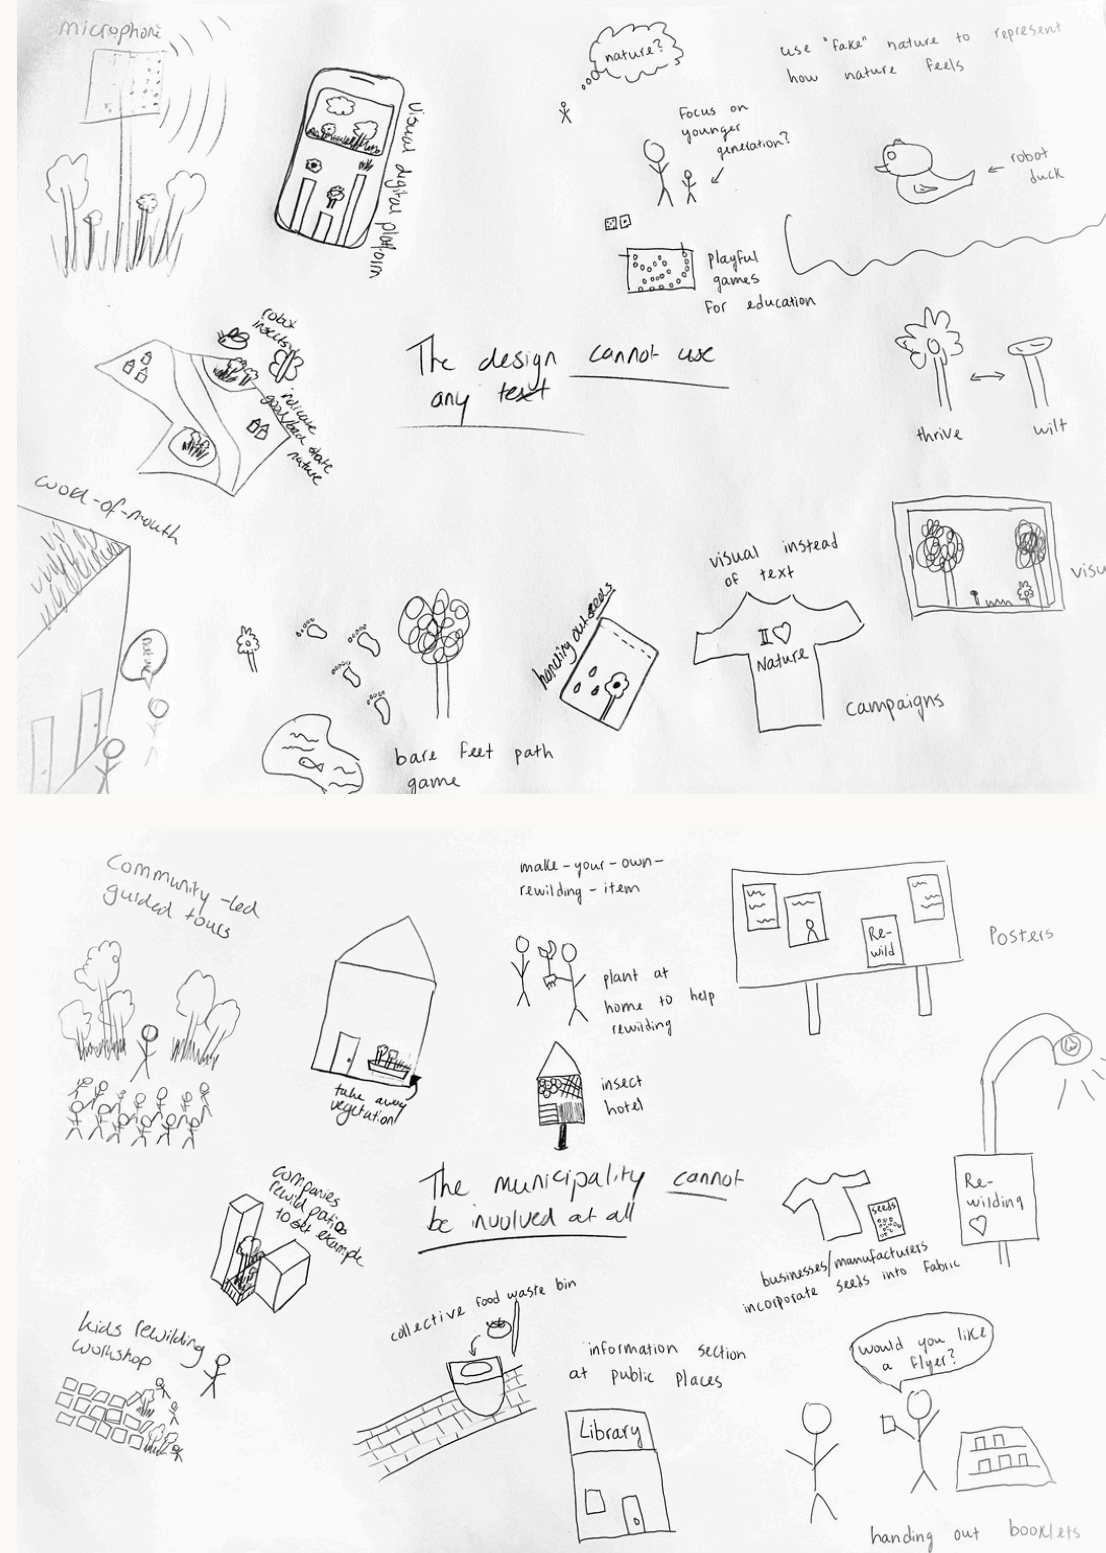 microphone
Visual digital platform
nature?
Focus on
younger
generation?
use "fake" nature to represent
how nature feels
robot
duck
playful
games
for education
robot
insects
indicate
good/bad state
nature
The design cannot use
any text
thrive
wilt
word-of-mouth
nature
bare feet path
game
handing out seeds
visual instead
of text
I ♡
Nature
campaigns
visu
Community-led
guided tours
make-your-own-
rewilding-item
plant at
home to help
rewilding
insect
hotel
take away
vegetation
Re-
wild
Posters
companies
rewild patios
to set example
The municipality cannot
be involved at all
seeds
businesses/manufacturers
incorporate seeds into fabric
Re-
wilding
♡
kids rewilding
workshop
collective food waste bin
information section
at public places
Library
would you like
a flyer?
handing out booklets